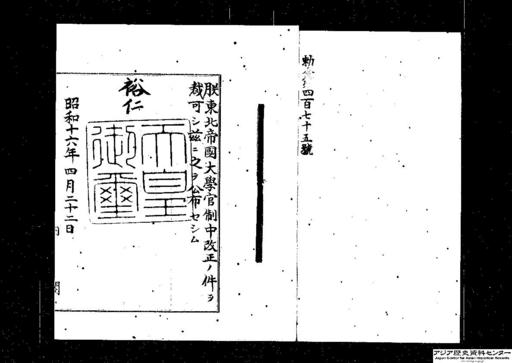 四百七十五號
朕東北帝國大學官制中改正ノ件ヲ
裁可シ茲ニ之ヲ公布セシム
裕仁
天皇
御璽
昭和十六年四月二十二日
内
閣
アジア歴史資料センター
Japan Center for Asian Historical Records